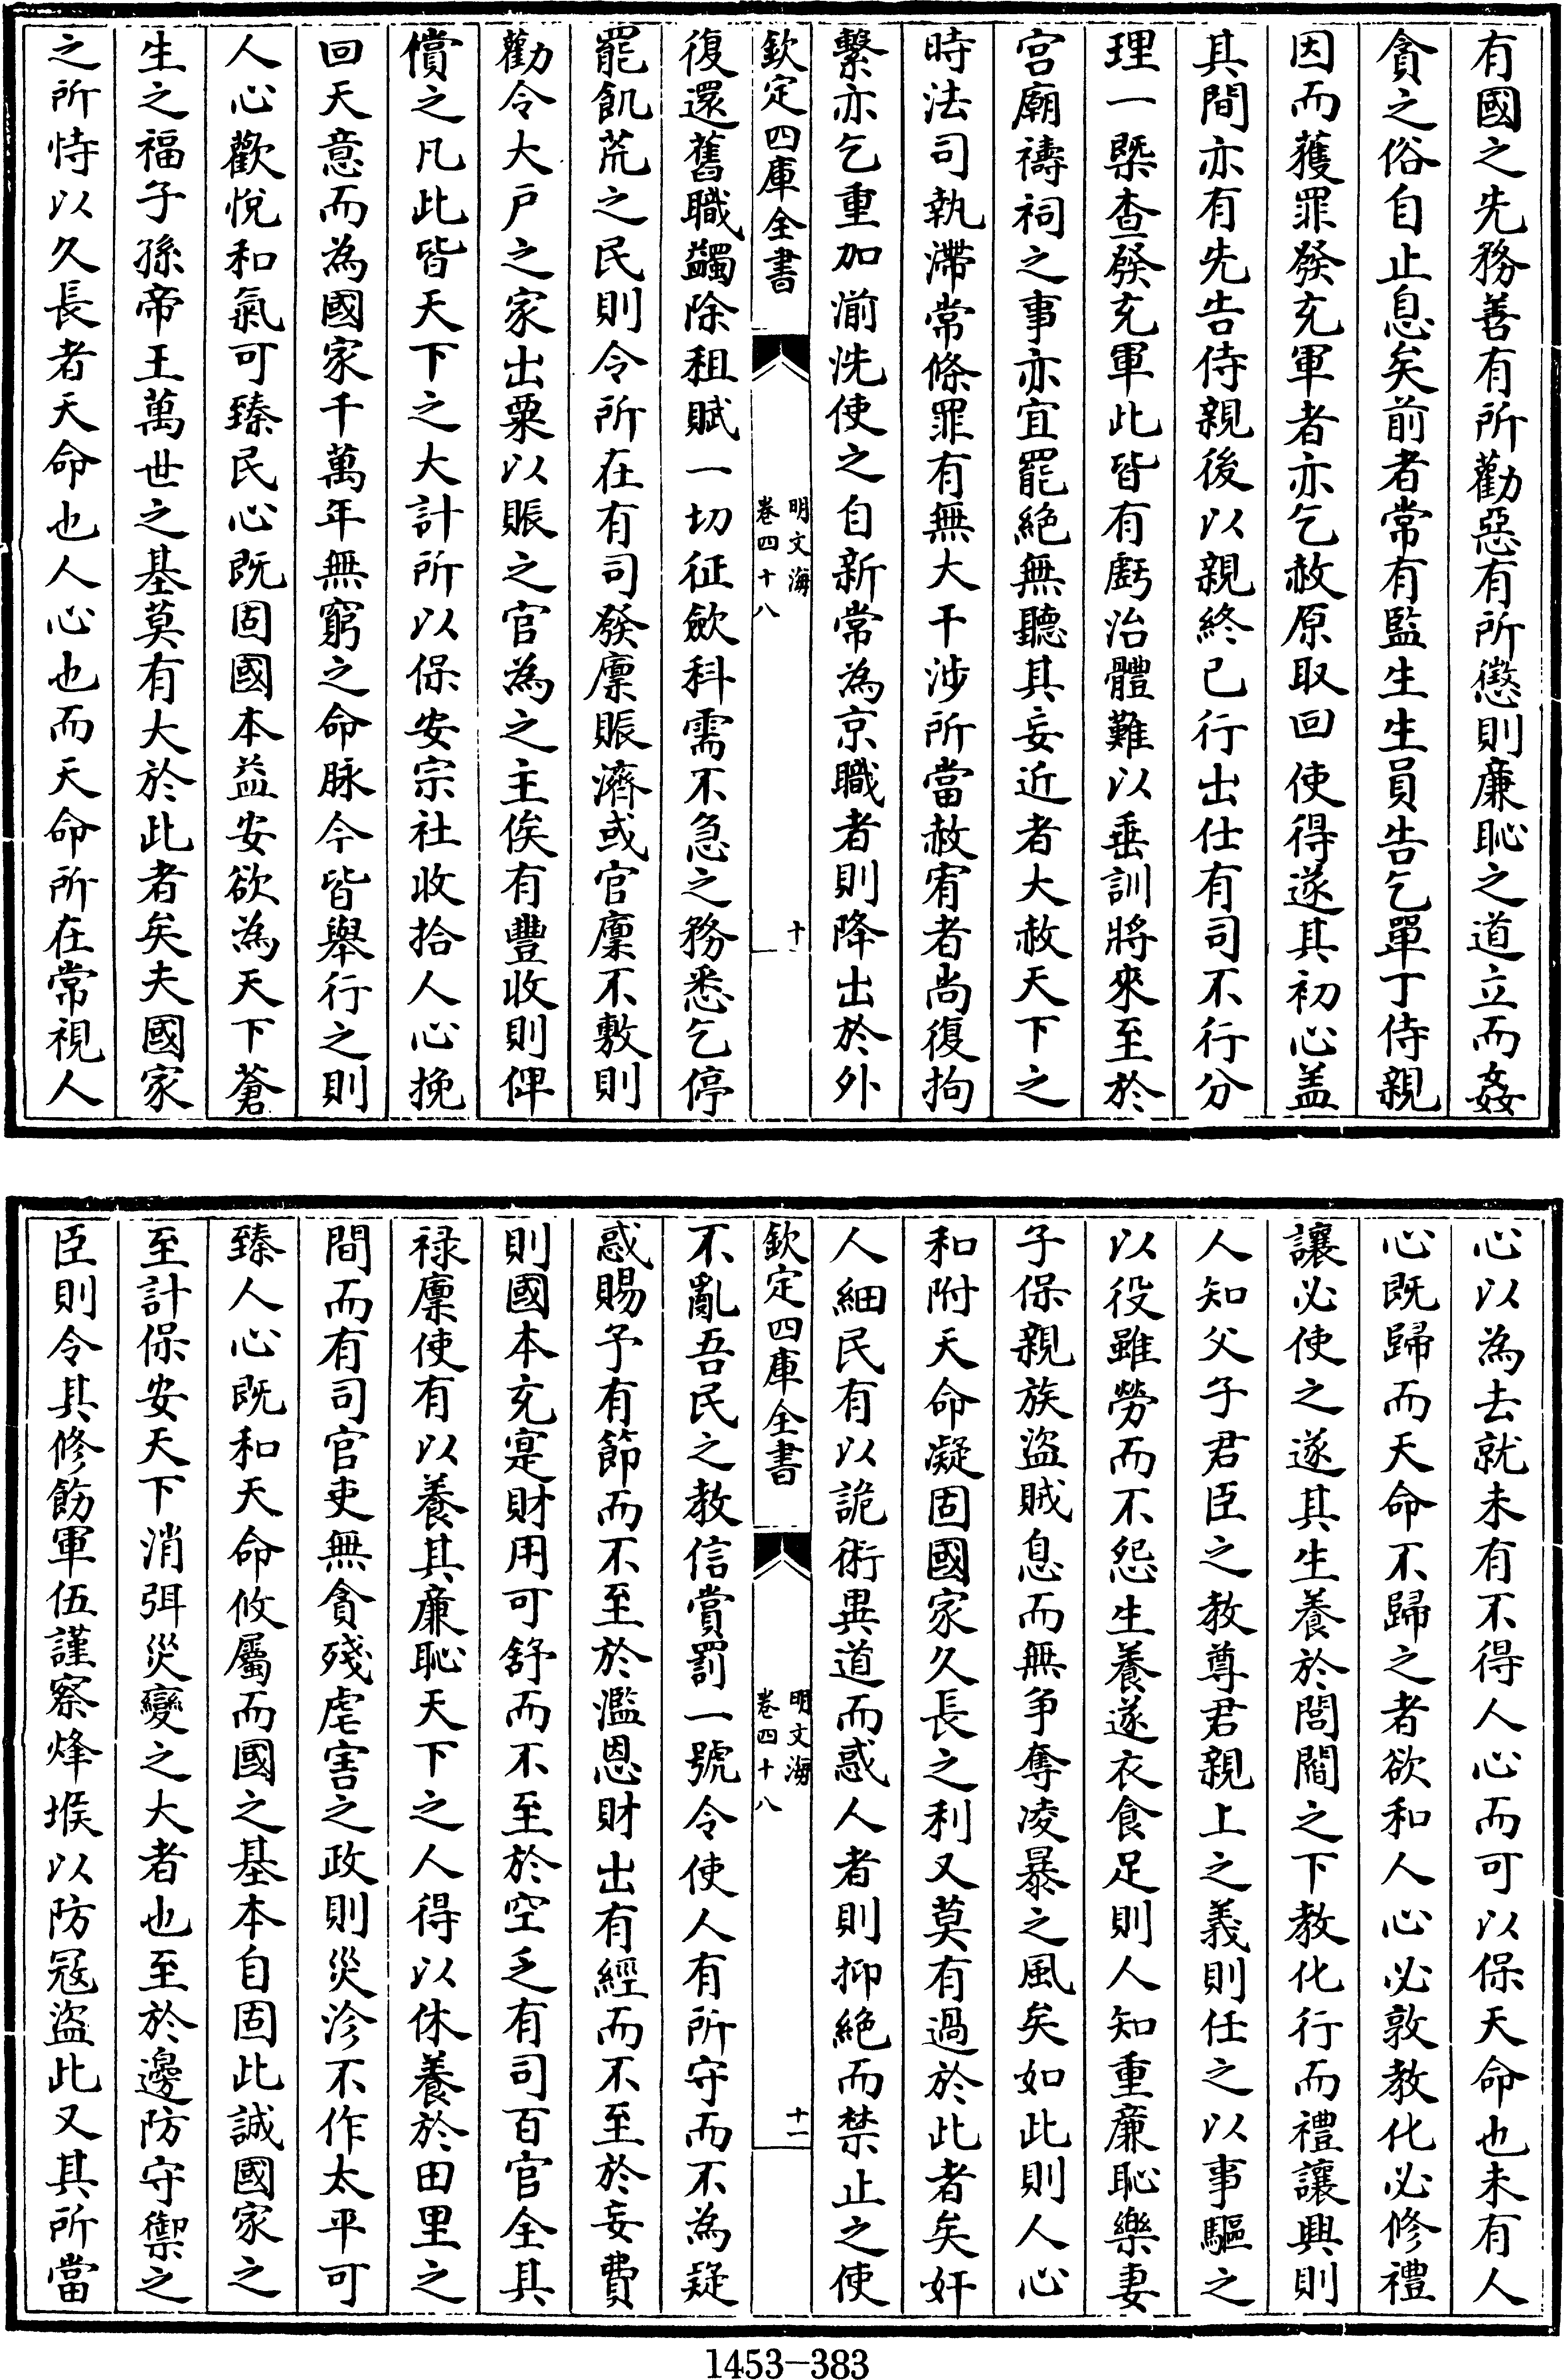 有國之先務善有所勸惡有所懲則廉恥之道立而姦
貪之俗自止息矣前者常有監生生員告乞單丁侍親
因而獲罪發充軍者亦乞赦原取回使得遂其初心盖
其間亦有先告侍親後以親終已行出仕有司不行分
理一槩查發充軍此皆有虧治體難以垂訓將來至於
宫廟禱祠之事亦宜罷絶無聽其妄近者大赦天下之
時法司執滯常條罪有無大干涉所當赦宥者尚復拘
繫亦乞重加湔洗使之自新常為京職者則降出於外
欽定四庫全書
明文海
卷四十八
十
復還舊職蠲除租賦一切征歛科需不急之務悉乞停
罷飢荒之民則令所在有司發廩賑濟或官廩不敷則
勸令大戶之家出粟以賑之官為之主俟有豐收則俾
償之凡此皆天下之大計所以保安宗社收拾人心挽
回天意而為國家千萬年無窮之命脉今皆舉行之則
人心歡悅和氣可臻民心既固國本益安欲為天下蒼
生之福子孫帝王萬世之基莫有大於此者矣夫國家
之所恃以久長者天命也人心也而天命所在常視人
心以為去就未有不得人心而可以保天命也未有人
心既歸而天命不歸之者欲和人心必敦教化必修禮
讓必使之遂其生養於閭閻之下教化行而禮讓興則
人知父子君臣之教尊君親上之義則任之以事驅之
以役雖勞而不怨生養遂衣食足則人知重廉恥樂妻
子保親族盜賊息而無爭奪凌暴之風矣如此則人心
和附天命凝固國家久長之利又莫有過於此者矣奸
人細民有以詭術異道而惑人者則抑絶而禁止之使
欽定四庫全書
明文海
卷四十八
十一
不亂吾民之教信賞罰一號令使人有所守而不為疑
惑賜予有節而不至於濫恩財出有經而不至於妄費
則國本充寔財用可舒而不至於空乏有司百官全其
祿廩使有以養其廉恥天下之人得以休養於田里之
間而有司官吏無貪殘虐害之政則災沴不作太平可
臻人心既和天命攸屬而國之基本自固此誠國家之
至計保安天下消弭災變之大者也至於邊防守禦之
臣則令其修飭軍伍謹察烽堠以防冦盜此又其所當
1453—383